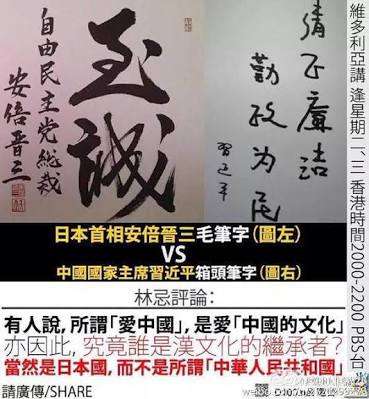 至誠
自由民主党総裁
安倍晋三
清正廉洁
勤政为民
习近平
維多利亞講 逢星期二、三 香港時間2000-2200 PBS台
日本首相安倍晉三毛筆字(圖左)
VS
中國國家主席習近平箱頭筆字(圖右)
林忌評論:
有人說,所謂「愛中國」,是愛「中國的文化」
亦因此,究竟誰是漢文化的繼承者?
當然是日本國,而不是所謂「中華人民共和國」
請廣傳/SHARE